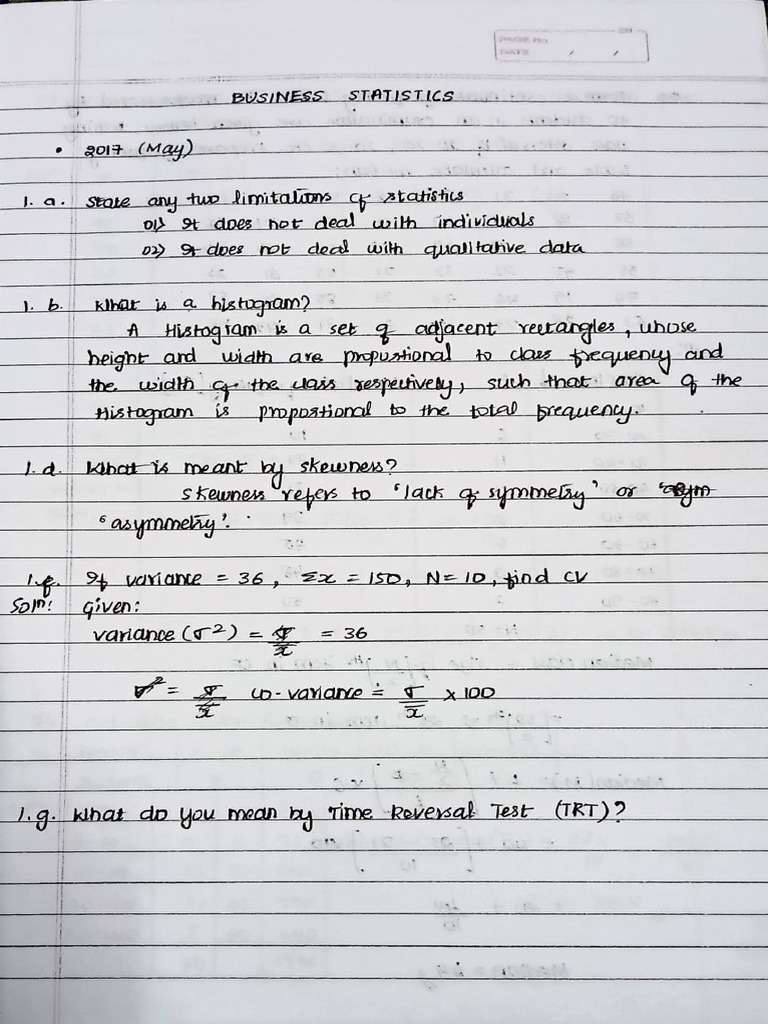 PAGE No.
DATE : / /
BUSINESS STATISTICS
• 2017 (May)
1. a. State any two limitations of statistics
01) It does not deal with individuals
02) It does not deal with qualitative data
1. b. What is a histogram?
A Histogram is a set of adjacent rectangles, whose
height and width are proportional to class frequency and
the width of the class respectively, such that area of the
Histogram is proportional to the total frequency.
1. d. What is meant by skewness?
Skewness refers to 'lack of symmetry' or 'asym
'asymmetry'.
1. f. If variance = 36, Σx = 150, N = 10, find CV
Soln: Given:
variance (σ²) = σ/x̄ = 36
σ² = σ/x̄ co-variance = σ/x̄ × 100
1. g. What do you mean by Time Reversal Test (TRT)?